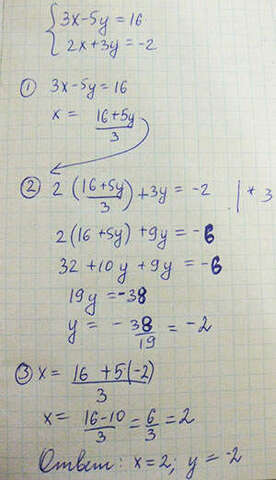 {3x-5y=16
2x+3y=-2
① 3x-5y=16
x = (16+5y)/3
② 2((16+5y)/3)+3y=-2 |*3
2(16+5y)+9y=-6
32+10y+9y=-6
19y=-38
y = -38/19 = -2
③ x = (16+5(-2))/3
x = (16-10)/3 = 6/3 = 2
Ответ: x=2; y=-2